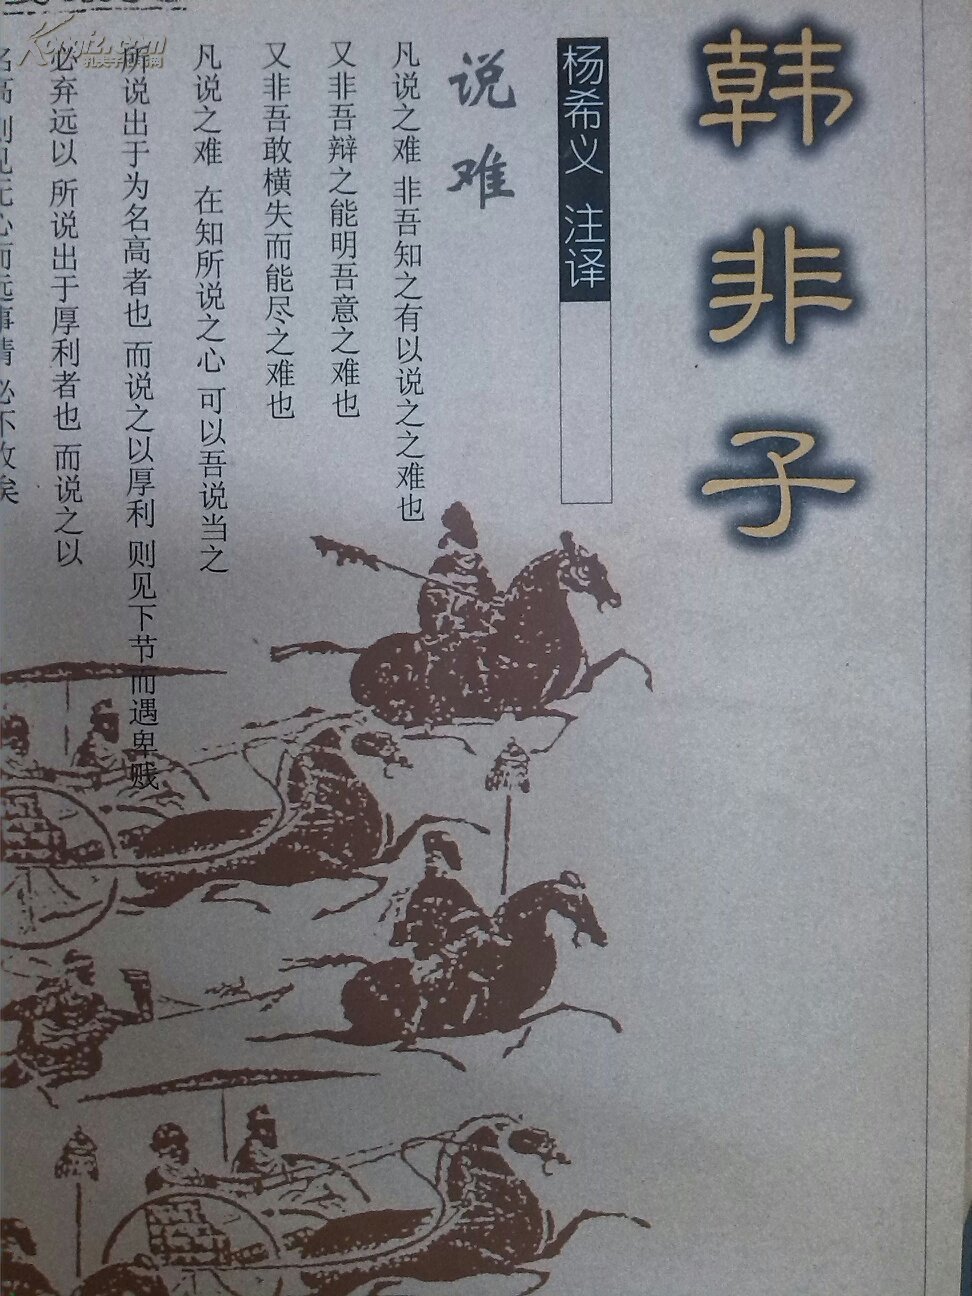 韩非子
杨希义 注译
说难
凡说之难 非吾知之有以说之之难也
又非吾辩之能明吾意之难也
又非吾敢横失而能尽之难也
凡说之难 在知所说之心 可以吾说当之
所说出于为名高者也 而说之以厚利 则见下节而遇卑贱
必弃远以 所说出于厚利者也 而说之以
名高则见无心而远事情 必不收矣
Kongfz.com
孔夫子旧书网